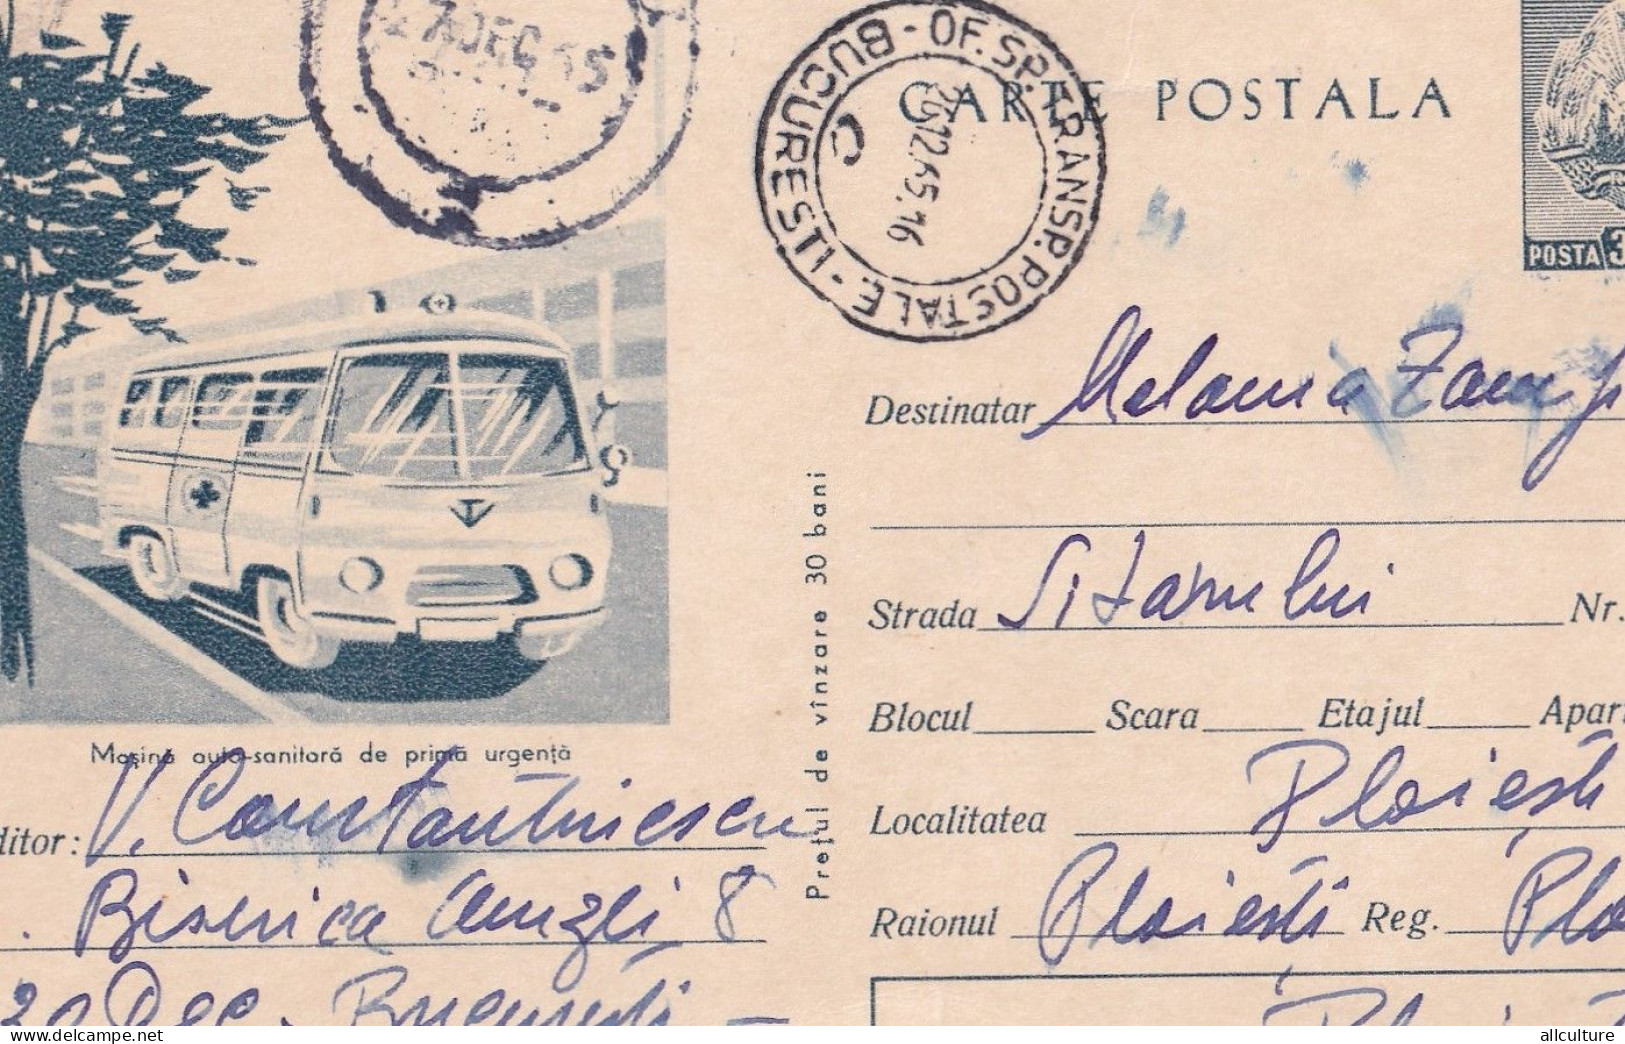 27 DEC 65
BUCURESTI - OF. SP. TRANSP. POSTALE -
26.12.65.16
C
CARTE POSTALA
POSTA 3
Destinatar Melania
Strada Sitarului Nr.
Blocul Scara Etajul Apar
Localitatea Ploiești
Raionul Ploiești Reg. Plo
Prețul de vînzare 30 bani
Mașină auto-sanitară de primă urgență
ditor: V. Constantinescu
Biserica Amzei 8
30 Dec. București
allculture